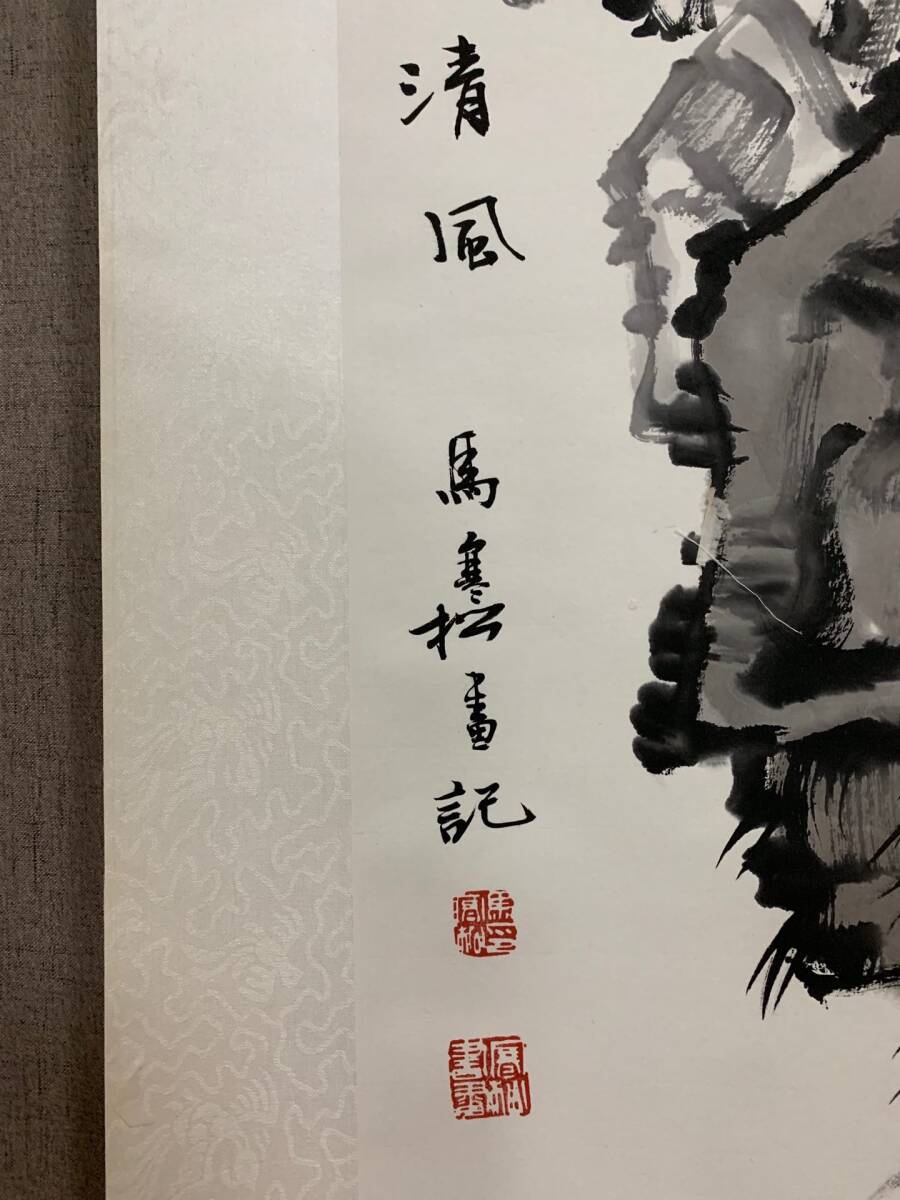 清風
馬寒松畫記